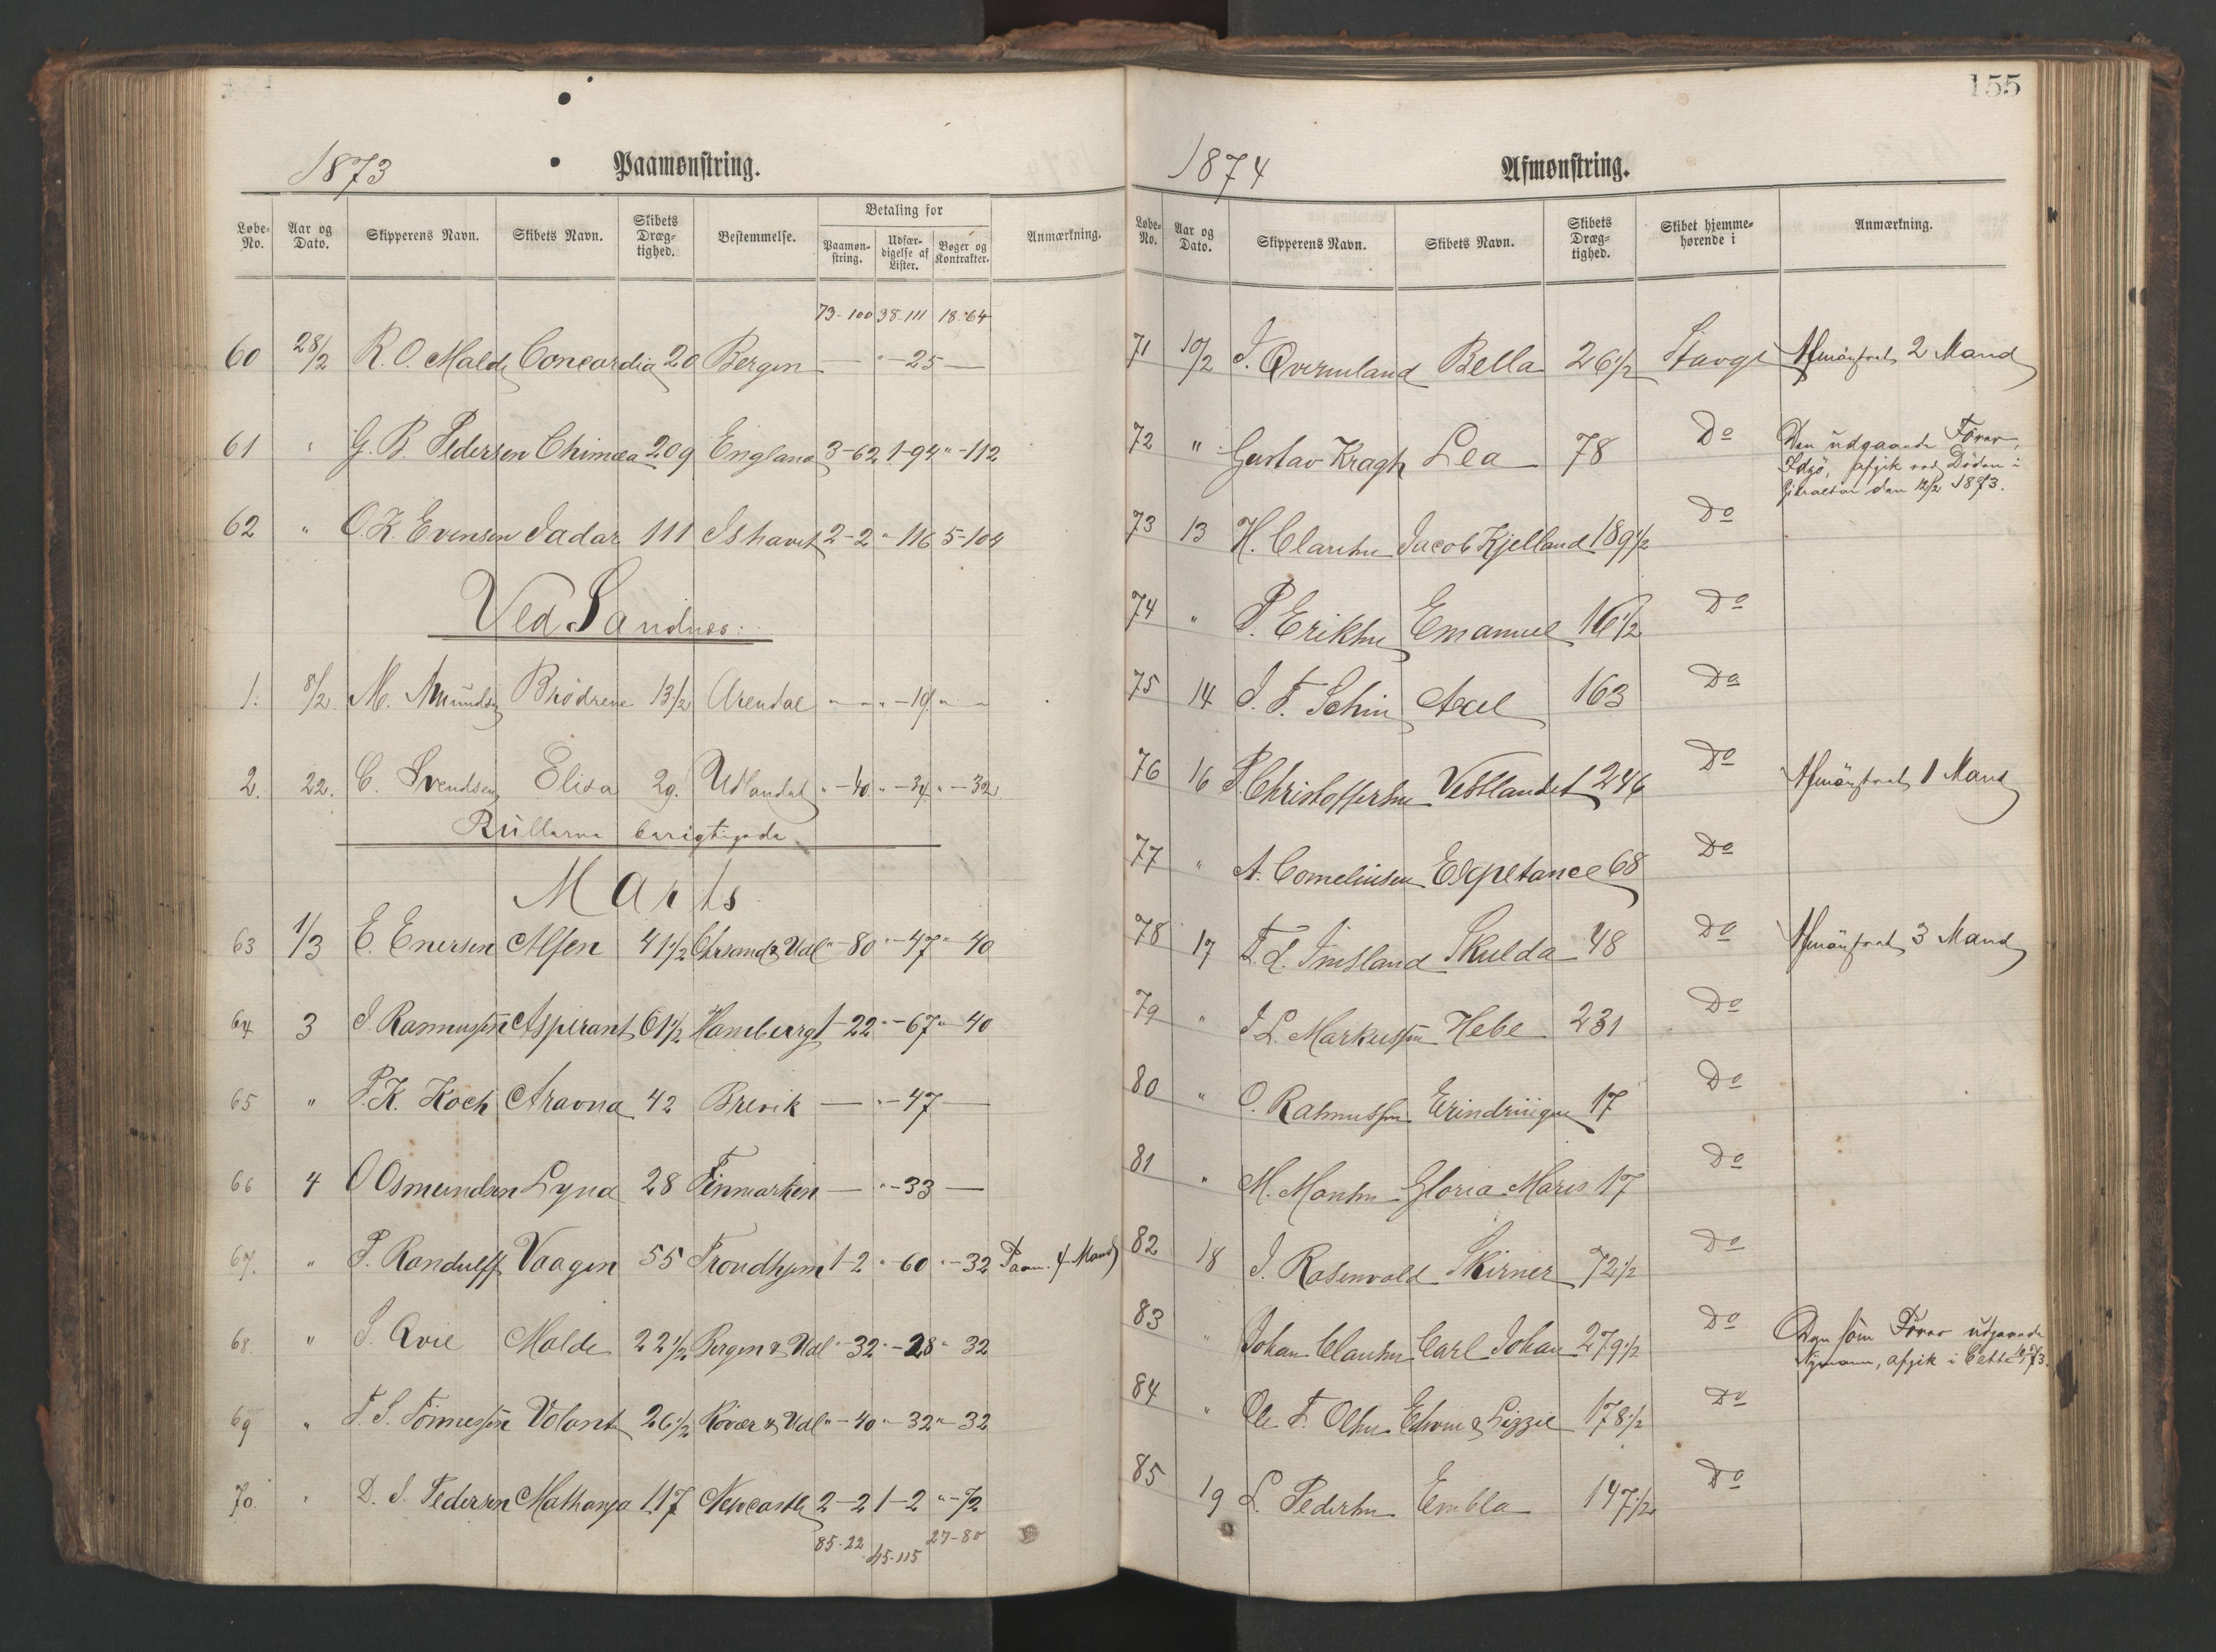 155
1873 Paamønstring.
Løbe-No. Aar og Dato. Skipperens Navn. Skibets Navn. Skibets Dræg-tighed. Bestemmelse. Betaling for Paamøn-string. Udfær-digelse af Lister. Bøger og Kontrakter. Anmærkning.
73-100 38-111 18-64
60 28/2 R. O. Malde Concordia 20 Bergen — " - 25 —
61 " G. B. Pedersen Chimæa 209 England 3-62 1-94 " -112
62 " O. K. Evensen Jadar 111 Ishavet 2-2 " -116 5-104
Ved Sandnes:
1. 8/2 M. Amundsen Brødrene 13 1/2 Arendal " - " - 19 " -
2. 22. C. Svendsen Elisa 29. Udlandet " - 40 " - 34 " - 32
Rullerne berigtigede
Marts
63 1/3 E. Enersen Alfen 41 1/2 Chrsand & Udl " - 80 " - 47 " - 40
64 3 J. Rasmussen Aspirant 61 1/2 Hamburg 1-22 " - 67 " - 40
65 " P. K. Koch Aravna 42 Brevik — " - 47 —
66 4 O Osmundsen Lyna 28 Finmarken — " - 33 —
67. " P. Randulff Vaagen 55 Trondhjem 1-2 " - 60 " - 32 Paam. 4 Mand
68. " J. Qvie Malde 22 1/2 Bergen & Udl " 32 " - 28 " 32
69 " T. S. Tönnesen Volant 26 1/2 Røvær & Udl " - 40 " - 32 " - 32
70. " D. S. Pedersen Mathanja 117 Newcastle 2-2 1-2 " - 72
85-22 45-115 27-80
1874 Afmønstring.
Løbe-No. Aar og Dato. Skipperens Navn. Skibets Navn. Skibets Dræg-tighed. Skibet hjemme-hørende i Anmærkning.
71 10/2 J. Qvernland Bella 26 1/2 Stavgr Afmönstret 2 Mand
72 " Gustav Kragh Lea 78 Do Den udgaaende Förer,
Idsö, afgik ved Döden i
Gibraltar den 12/2 1873.
73 13 H. Clausen Jacob Kjelland 189 1/2 Do
74 " P. Eriksen Emanuel 16 1/2 Do
75 14 J. F. Schiu Axel 163 Do
76 16 P. Christoffersen Vestlandet 246 Do Afmönstret 1 Mand
77 " A. Corneliusen Expetance 68 Do
78 17 T. L. Imsland Skulda 48 Do Afmönstret 3 Mand
79 " J L. Markussen Hebe 231 Do
80 " O. Rasmussen Erindringen 17 Do
81 " M. Monsen Gloria Maris 17 Do
82 18 J. Rosenvold Skirner 72 1/2 Do
83 " Johan Clausen Carl Johan 279 1/2 Do Den som Förer udgaaende
Nymann, afgik i Cette
84 " Ole F. Olsen Edwin & Lizzie 178 1/2 Do
85 19 L. Pedersen Embla 147 1/2 Do